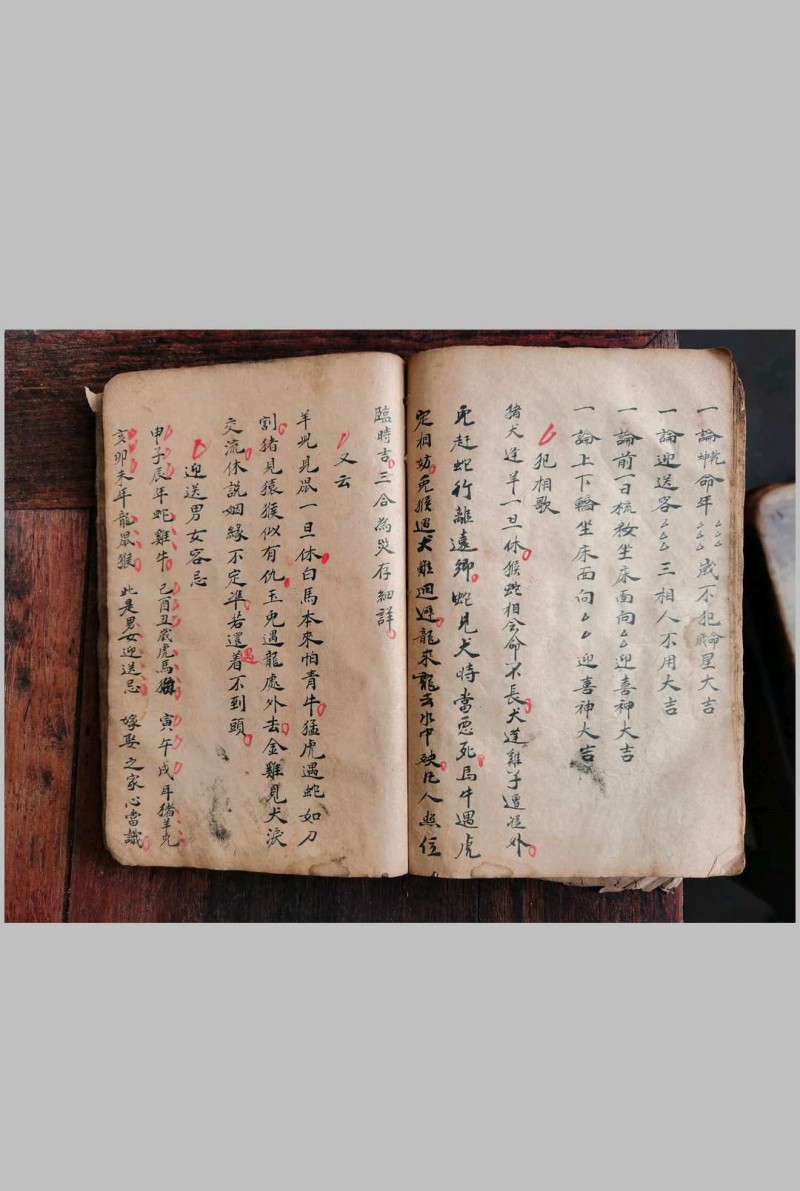 一論乾坤命年△△△歲不犯命宿星大吉
一論迎送客△△△三相人不用大吉
一論前一日梳妝坐床面向△△迎喜神大吉
一論上下轎坐床面向△△迎喜神大吉
犯相歌
猪犬逢羊一旦休猴蛇相会命不長犬逢雞子遭逆外
兎赶蛇行離遠鄉蛇見犬時當惡死馬牛遇虎
定相妨兎猴遇犬难迴避龍來龍去水中殃凡人與位
臨時吉三合為災存細詳
又云
羊兇見鼠一旦休白馬本來怕青牛猛虎遇蛇如刀
割猪見猿猴似有仇玉兎遇龍處外去金雞見犬淚
交流休說姻緣不定準若還遇着不到頭
迎送男女客忌
申子辰年蛇雞牛 巳酉丑歲虎馬猴 寅午戌年猪羊兎
亥卯未年龍鼠猴 此是男女迎送忌 嫁娶之家心當識